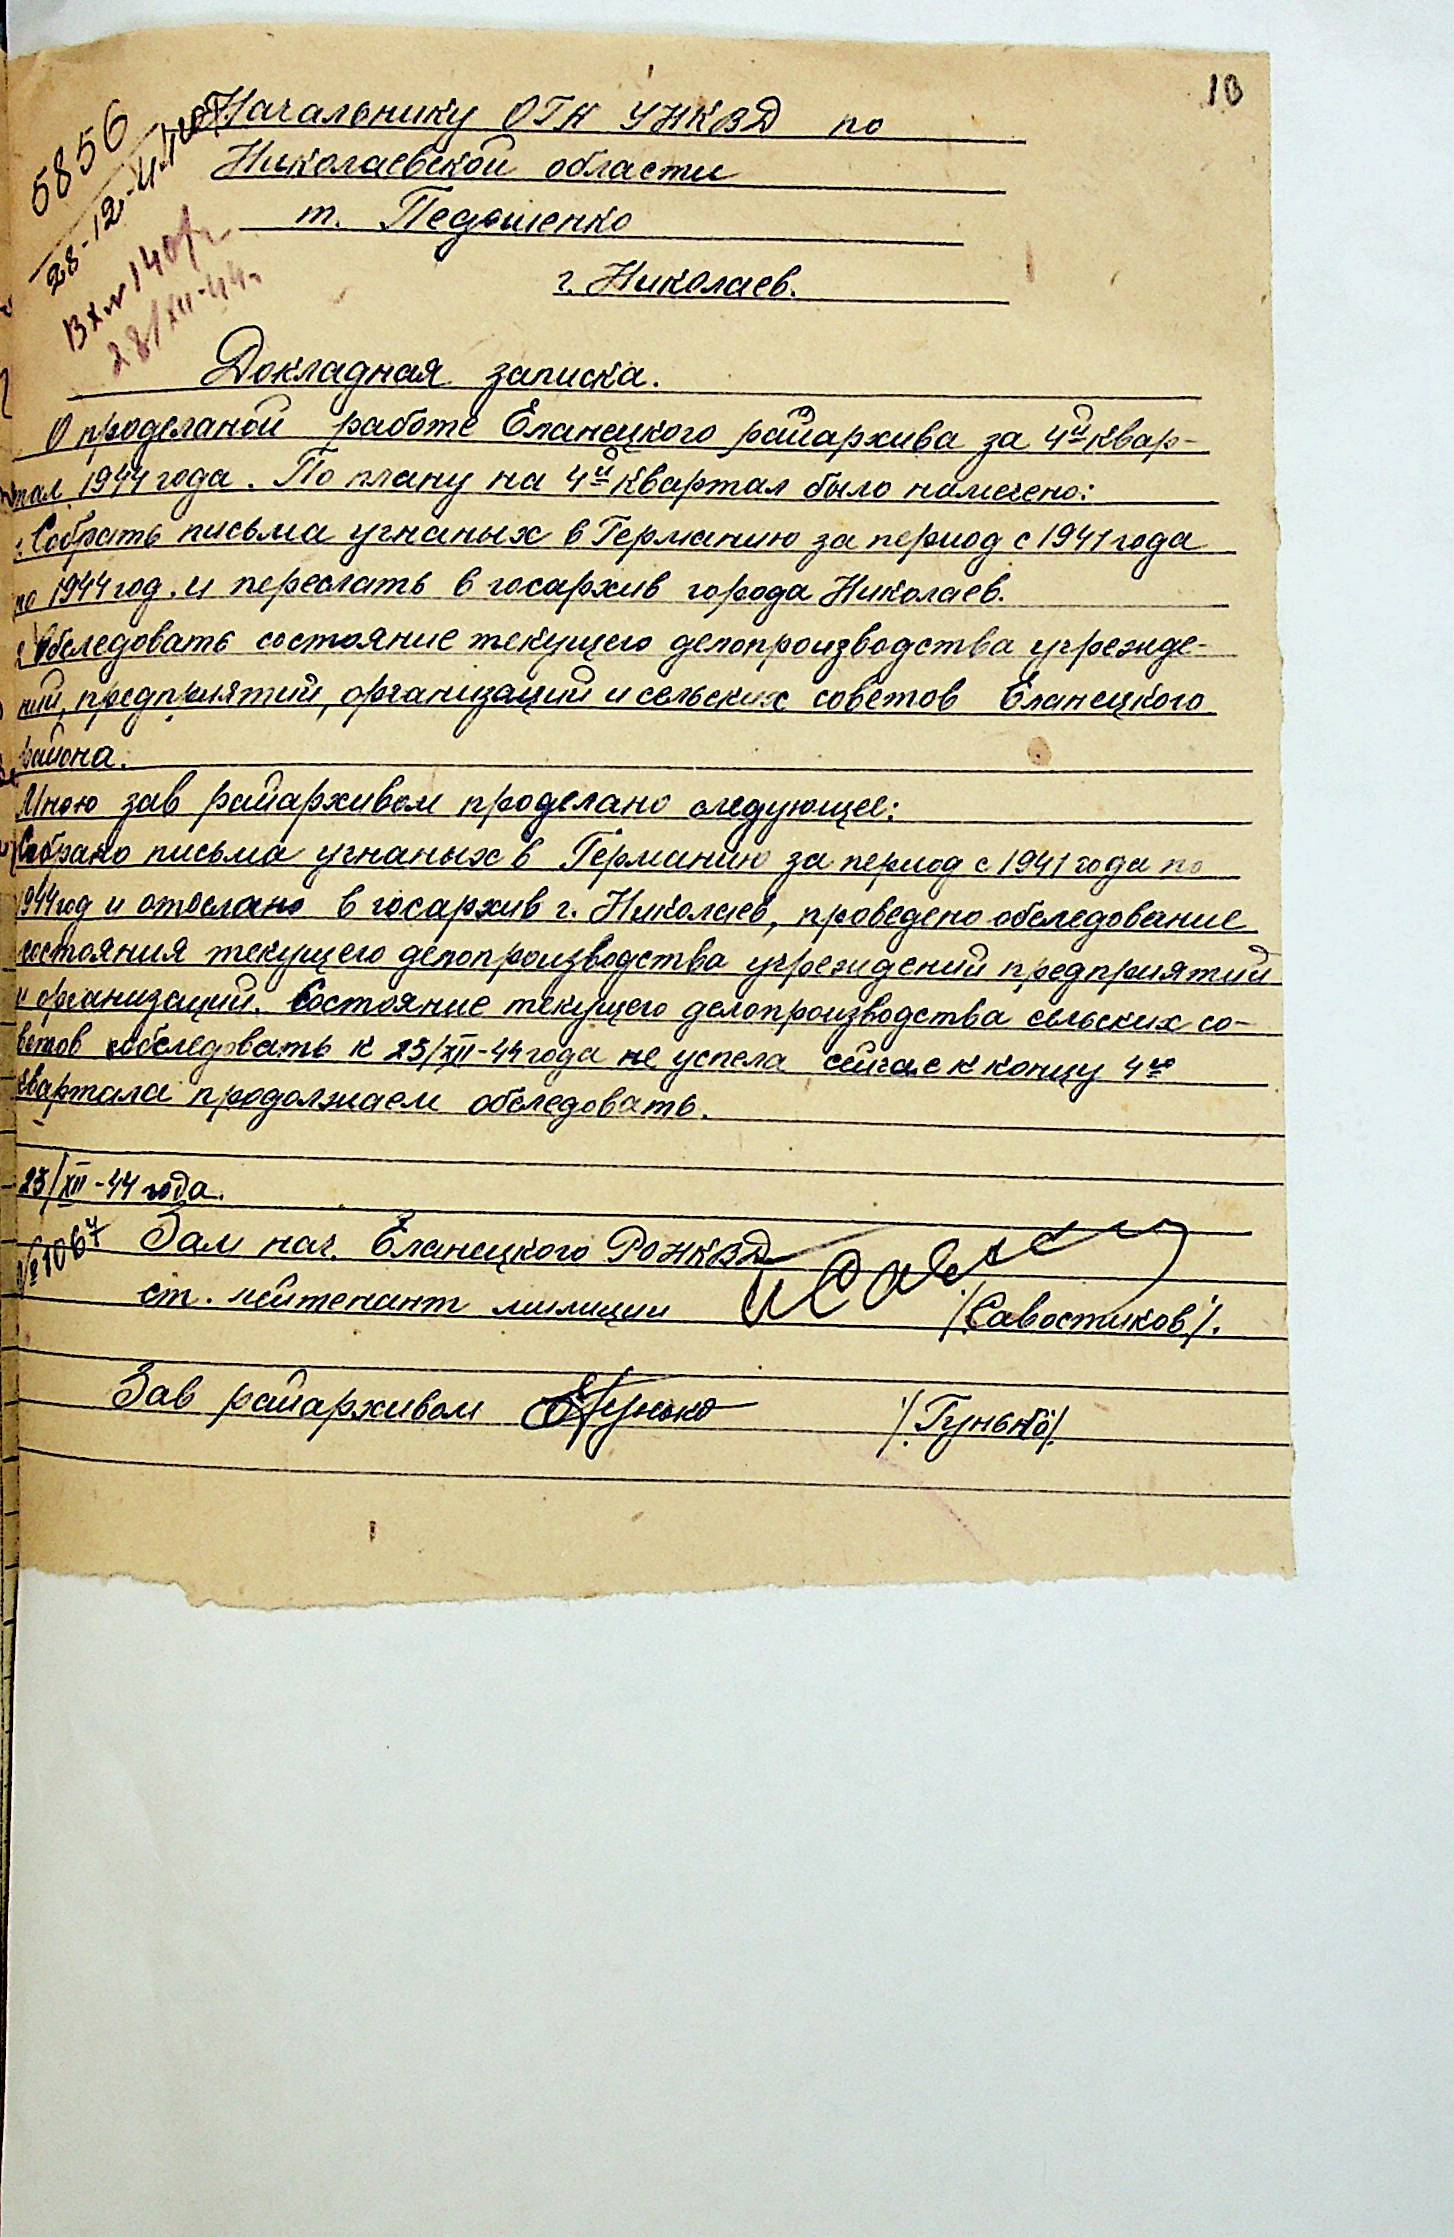 10
5856
28-12-44 г
Вх № 140
28/XII-44.
Начальнику ОГН УНКВД по
Николаевской области
т. Педошенко
г. Николаев.
Докладная записка.
О проделаной работе Еланецкого райархива за 4ый квар-
тал 1944 года. По плану на 4ый квартал было намечено:
Собрать письма угнаных в Германию за период с 1941 года
по 1944 год. и переслать в госархив города Николаев.
Обследовать состояние текущего делопроизводства учрежде-
ний, предприятий, організаций и сельских советов Еланецкого
района.
Мною зав райархивом проделано следующее:
Собрано письма угнаных в Германию за период с 1941 года по
1944 год и отослано в госархив г. Николаев, проведено обследование
состояния текущего делопроизводства учреждений предприятий
и организаций. Состояние текущего делопроизводства сельских со-
ветов обследовать к 25/XII-44 года не успела сейчас к концу 4го
квартала продолжаем обследовать.
25/XII-44 года.
№ 1067
Зам нач. Еланецкого РОНКВД
ст. лейтенант милиции /Савостиков/.
Зав райархивом Гунько /Гунько/